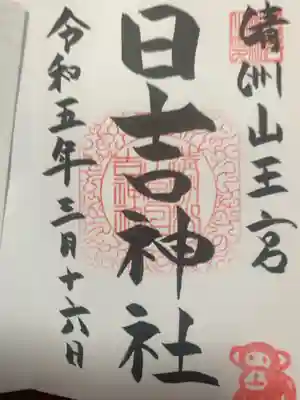 清洲山王宮
日吉神社
令和五年三月十六日